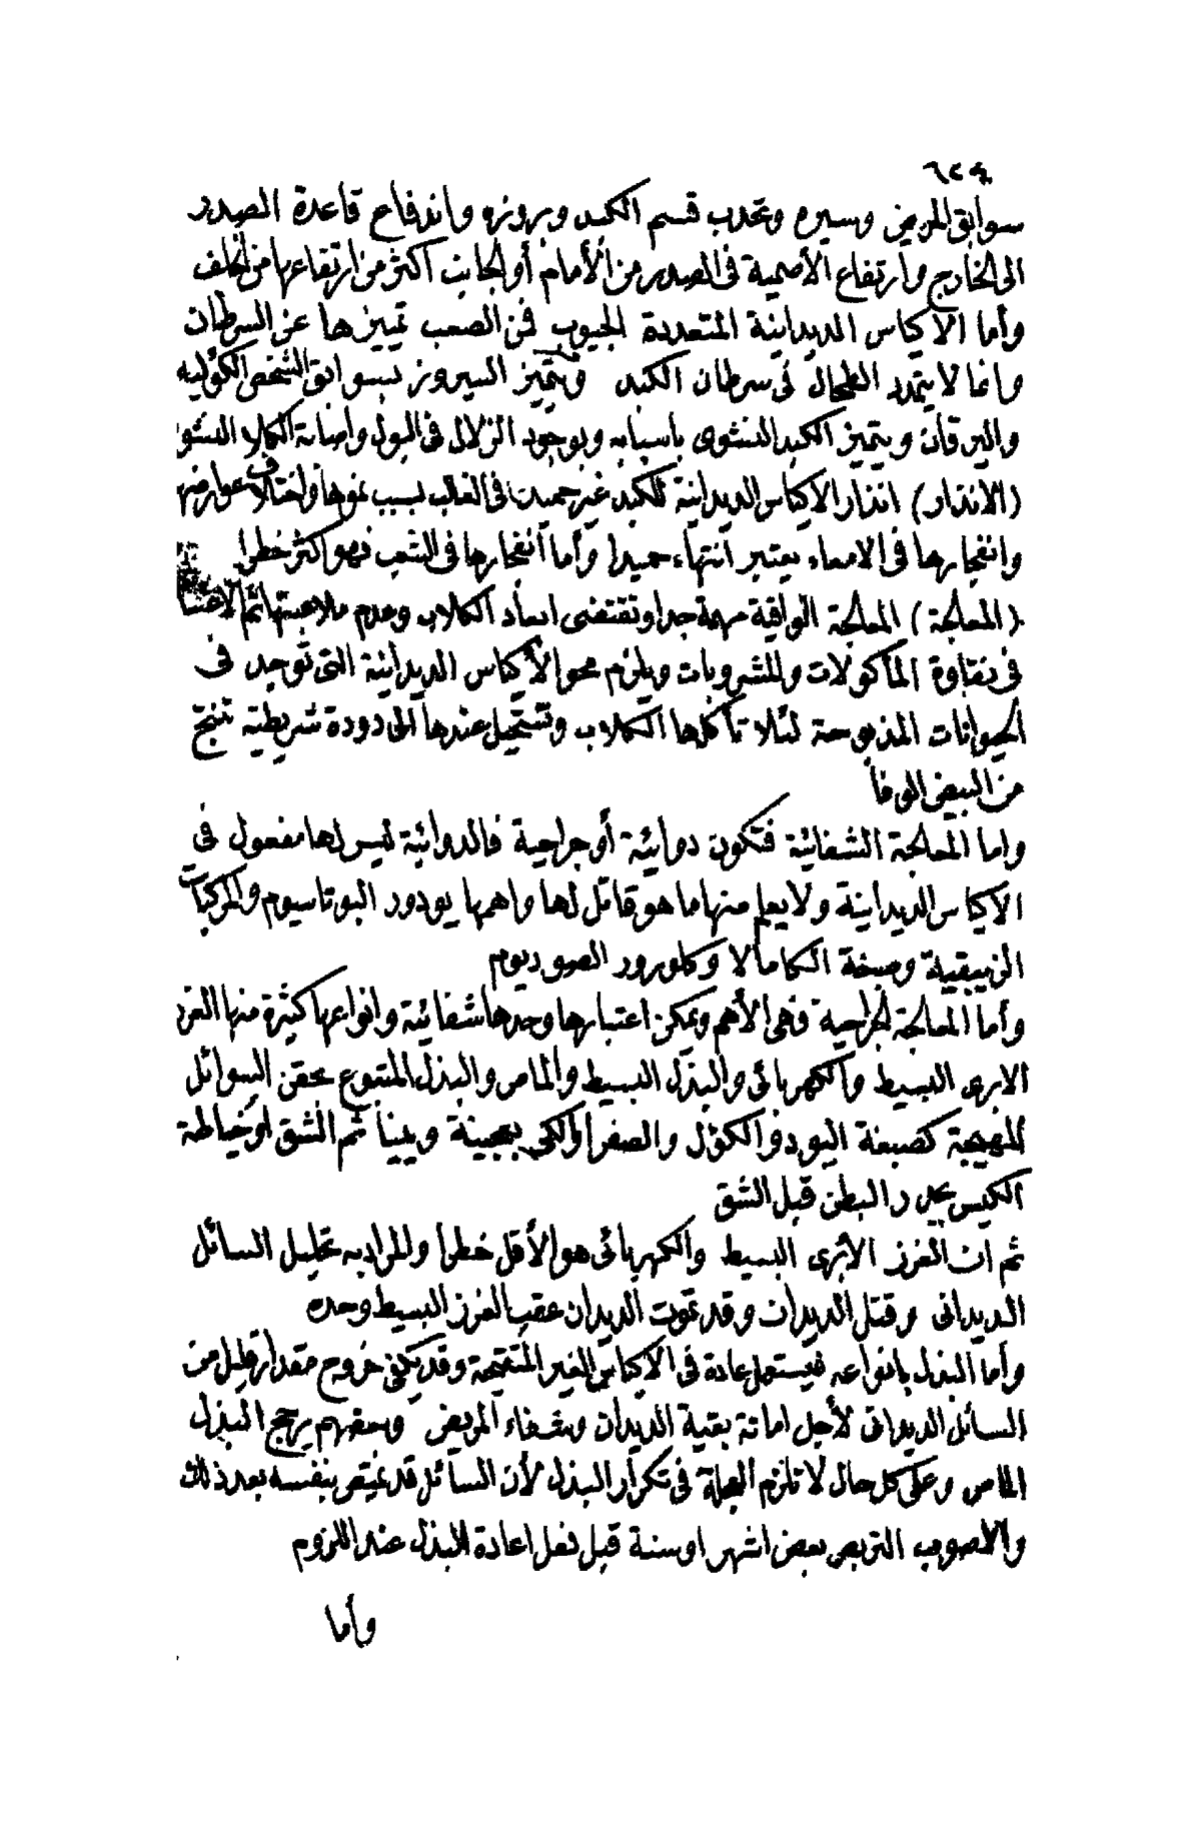 ٦٢٤
سوابق المريض وسيره وتحدب قسم الكبد وبروزه واندفاع قاعدة الصدر
الى الخارج وارتفاع الأصمية فى الصدر من الأمام أو الجانب أكثر من ارتفاعها من الخلف
وأما الاكياس الديدانية المتعددة الجيوب فمن الصعب تمييزها عن السرطان
وانما لا يتمدد الطحال فى سرطان الكبد ويتميز السيروز بسوابق الشخص الكؤليه
واليرقان ويتميز الكبد النشوى باسبابه وبوجود الزلال فى البول واصابة الكلا النشو
(الانذار) انذار الاكياس الديدانية للكبد غير حميدة فى الغالب لسبب نموها واختلاف عوارضها
وانفجارها فى الامعاء يعتبر انتهاء حميدا وأما انفجارها فى الشعب فهو أكثر خطرا
(المعالجة) المعالجة الواقية مهمة جدا وتقتضى ابعاد الكلاب وعدم ملاعبتها ثم الاعتنا
فى نقاوة المأكولات والمشروبات ويلزم محو الأكياس الديدانية التى توجد فى
الحيوانات المذبوحة لئلا تأكلها الكلاب وتستحيل عندها الى دودة شريطية تنتج
من البيض الوفا
واما المعالجة الشفائية فتكون دوائية أو جراحية فالدوائية ليس لها مفعول فى
الاكياس الديدانية ولا يعلم منها ما هو قاتل لها واهمها يودور البوتاسيوم والمركبات
الزيبقية وصبغة الكامالا وكلورور الصوديوم
وأما المعالجة الجراحية فهى الأهم ويمكن اعتبارها وحدها شفائية وانواعها كثيرة منها الغرز
الابرى البسيط والكهربائى والبذل البسيط والماص والبذل المتبوع بحقن السوائل
المهيجة كصبغة اليود والكؤل والصفرا والكى بعجينة ويينا ثم الشق أو خياطة
الكيس بجدر البطن قبل الشق
ثم ان الغرز الأبرى البسيط والكهربائى هو الأقل خطرا والمراد به تحليل السائل
الديدانى وقتل الديدان وقد تموت الديدان عقب الغرز البسيط وحده
وأما البذل بانواعه فيستعمل عادة فى الاكياس الغير المتقيحة وقد يكفى خروج مقدار قليل من
السائل الديدانى لأجل اماتة بقية الديدان وشفاء المريض وبعضهم يرجح البذل
الماص وعلى كل حال لا تلزم العجلة فى تكرار البذل لأن السائل قد يمتص بنفسه بعد ذلك
والاصوب التربص بعض اشهر او سنة قبل فعل اعادة البذل عند اللزوم
وأما